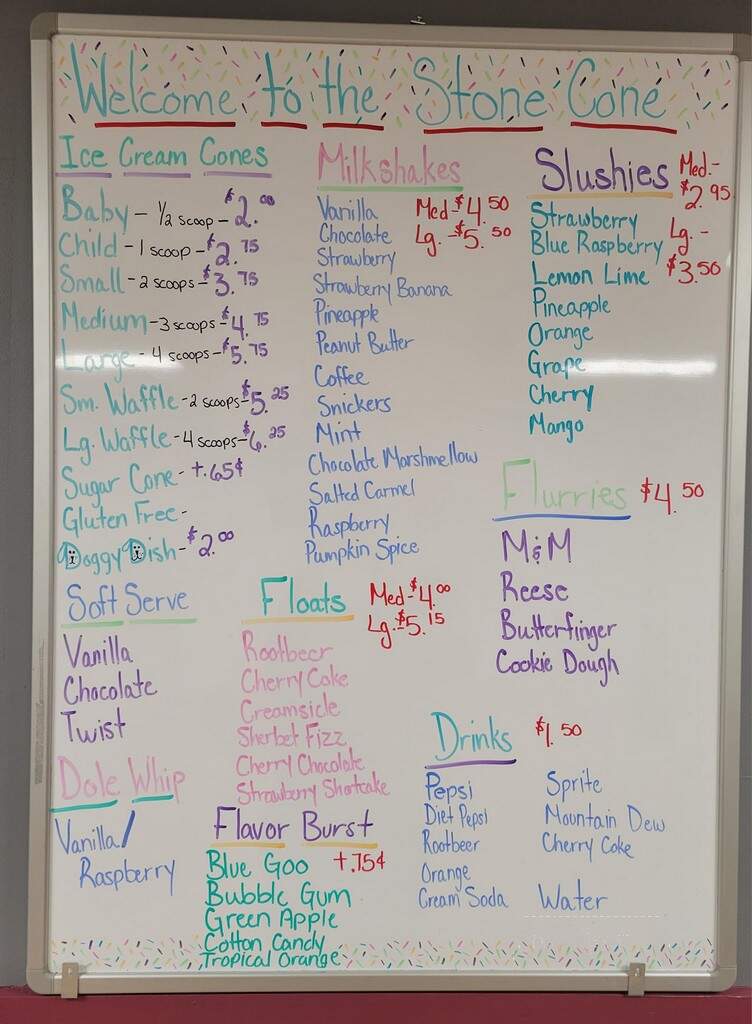 Welcome to the Stone Cone
Ice Cream Cones
Baby - 1/2 scoop - $2.00
Child - 1 scoop - $2.75
Small - 2 scoops - $3.75
Medium - 3 scoops - $4.75
Large - 4 scoops - $5.75
Sm. Waffle - 2 scoops - $5.25
Lg. Waffle - 4 scoops - $6.25
Sugar Cone - +.65¢
Gluten Free -
Doggy Dish - $2.00
Milkshakes
Med - $4.50
Lg. - $5.50
Vanilla
Chocolate
Strawberry
Strawberry Banana
Pineapple
Peanut Butter
Coffee
Snickers
Mint
Chocolate Marshmellow
Salted Carmel
Raspberry
Pumpkin Spice
Slushies
Med. -
$2.95
Lg. -
$3.50
Strawberry
Blue Raspberry
Lemon Lime
Pineapple
Orange
Grape
Cherry
Mango
Flurries $4.50
M&M
Reese
Butterfinger
Cookie Dough
Soft Serve
Vanilla
Chocolate
Twist
Floats
Med - $4.00
Lg. - $5.15
Rootbeer
Cherry Coke
Creamsicle
Sherbet Fizz
Cherry Chocolate
Strawberry Shortcake
Drinks $1.50
Pepsi
Diet Pepsi
Rootbeer
Orange
Cream Soda
Sprite
Mountain Dew
Cherry Coke
Water
Dole Whip
Vanilla/
Raspberry
Flavor Burst
+.75¢
Blue Goo
Bubble Gum
Green Apple
Cotton Candy
Tropical Orange